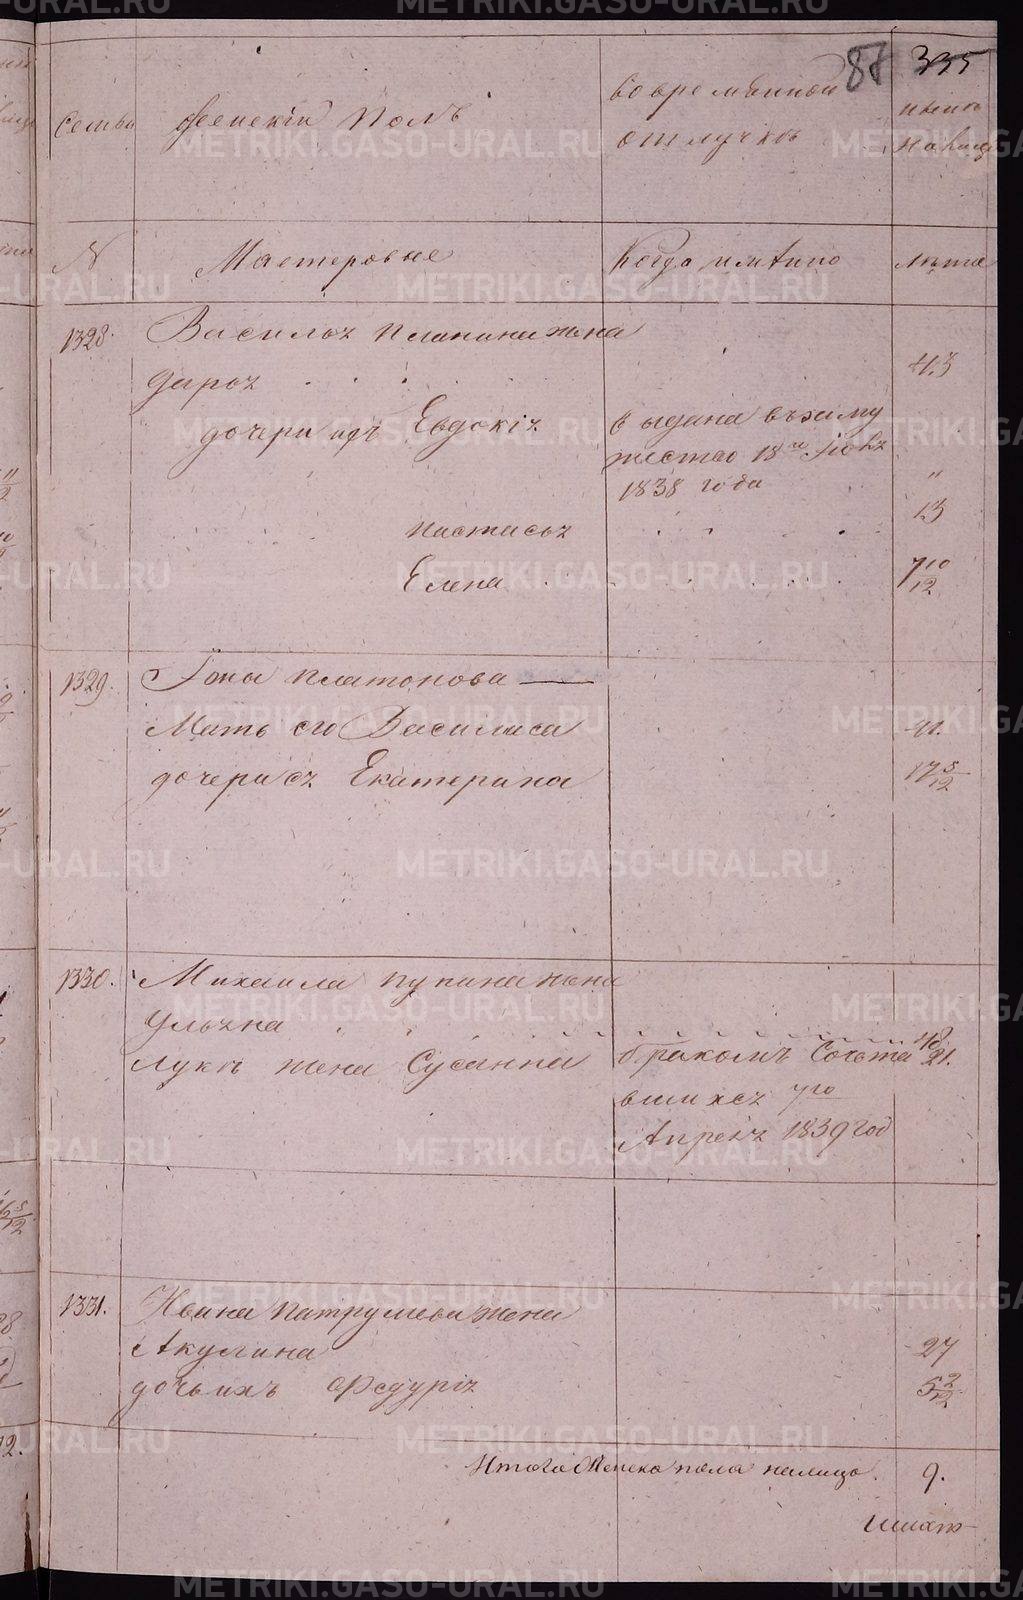 87 335
Семьи Женскiй Полъ во временной отлучкѣ нынѣ на лицо
№ Мастеровые Когда имѣнно лѣта
1328. Василья жена
Дарья . . . 43
дочери ихъ Евдокiя выдана въ заму
жество 18го
1838 года "
Настасья . . . 13
Елена . . . 7 10/12
1329. Iона Платонова —
Мать его Василиса 41.
дочери ея Екатерина 17 5/12
1330. Михаила Пупина жена
Ульяна . . . 48
Луки жена Сусанна бракомъ Сочета 21.
вшихся 7го
Апреля 1839 год
1331. Ивана Патрушева жена
Акулина 27
дочь ихъ Федурiя 5 2/12
Итого Женска пола налицо. 9.